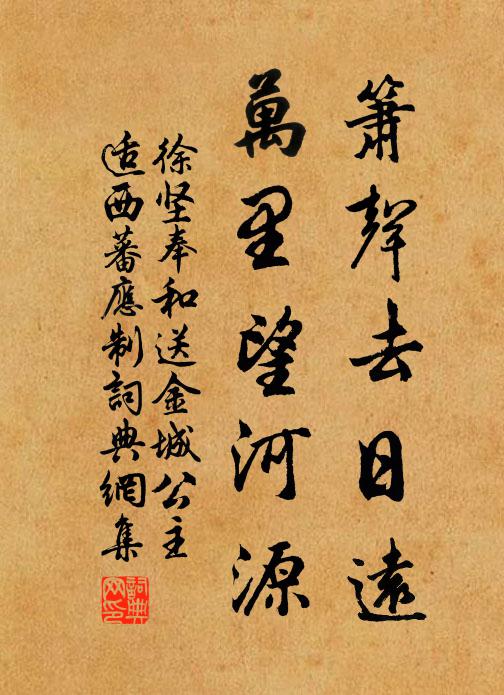 簫聲去日遠
萬里望河源
徐坚奉和送金城公主
适西蕃應制詞典網集
詞典網印